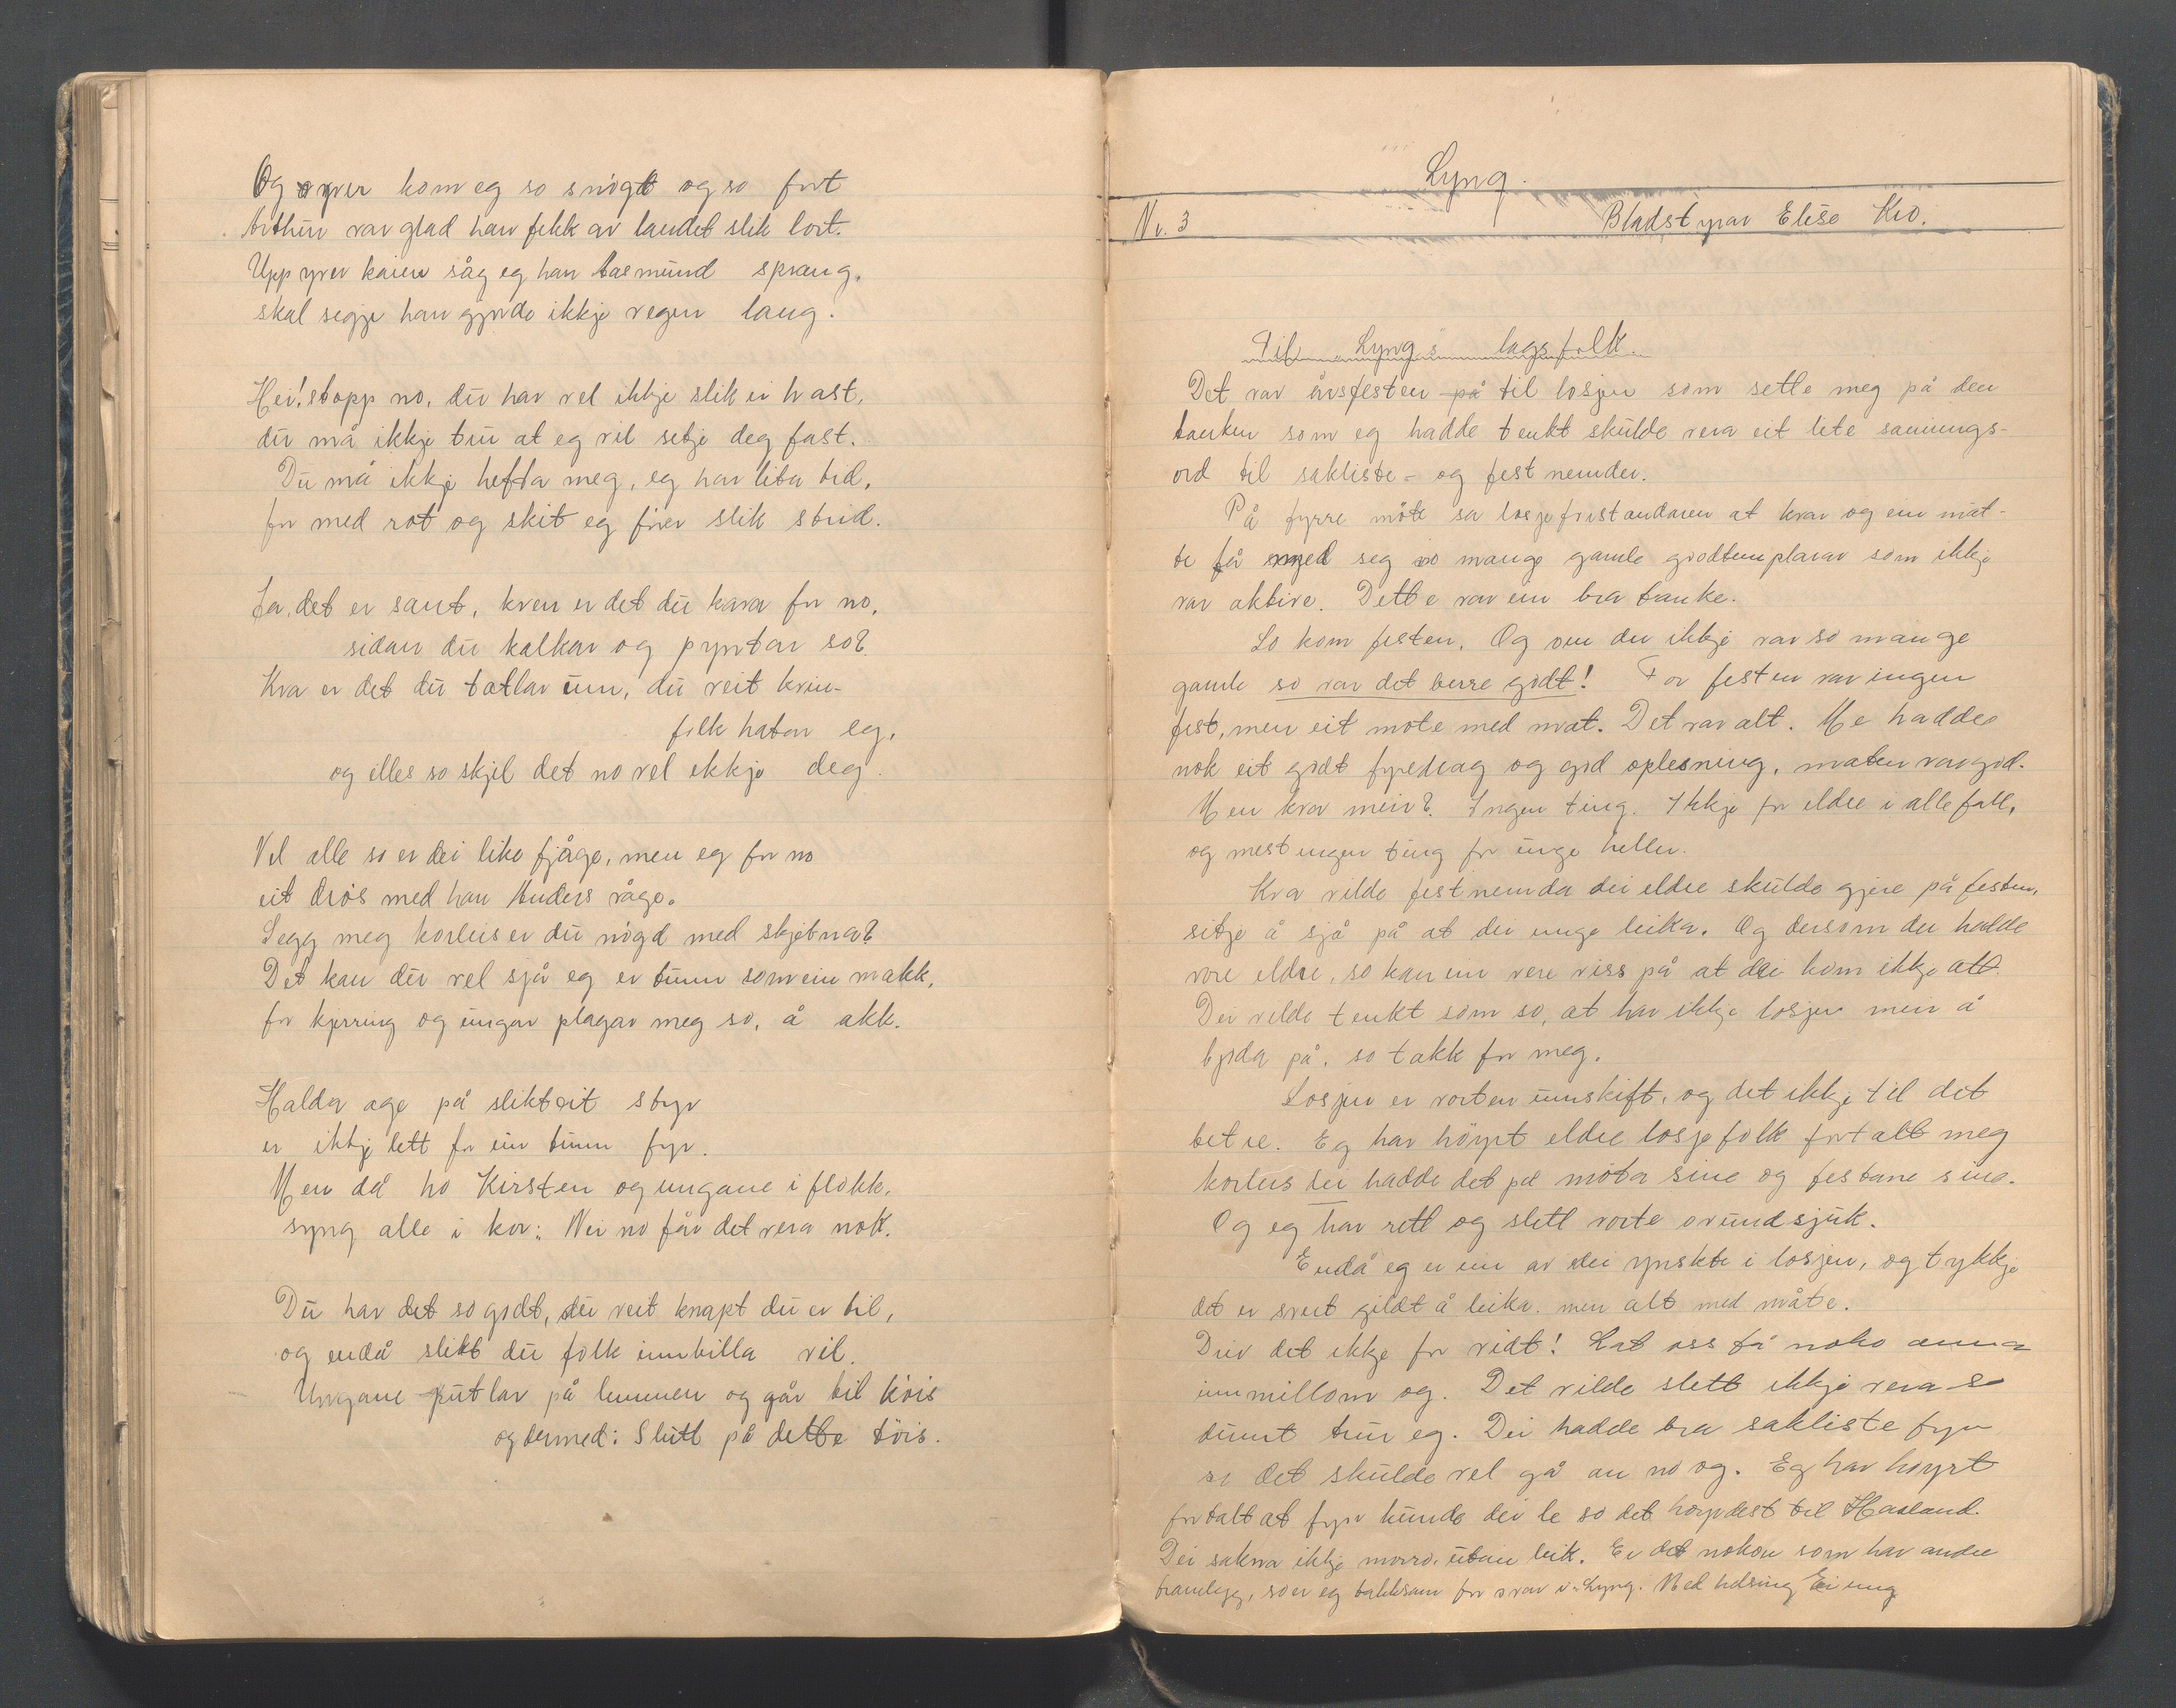 Og yver kom eg so snögt og so fort
Arthur var glad han fekk av landet slik lort.
Upp yver kaien såg eg han Rasmund sprang,
skal segje han gjorde ikkje vegen lang.
Hei! stopp no, du har vel ikkje slik ei hast,
du må ikkje tru at eg vil setje deg fast.
Du må ikkje hefta meg, eg har lita tid,
for med rot og skit eg förer slik strid.
Ja, det er sant, kven er det du kava for no,
sidan du kalkar og pyntar so?
Kva er det du tatlar um, du veit kvin-
folk hatar eg,
og elles so skjel det no vel ikkje deg.
Vel alle so er dei like fjåge, men eg for no
eit drös med han Anders våge.
Segg meg korleis er du nögd med skjebna?
Det kan du vel sjå eg er tunn som ein makk,
for kjerring og ungar plagar meg so, å akk.
Halda age på slikt eit styr
er ikkje lett for ein tunn fyr.
Men då ho Kirsten og ungane i flokk,
syng alle i kor: Nei no får det vera nok.
Du har det so godt, du veit knapt du er til,
og endå slikt du folk innbilla vil.
Ungane putlar på lummen og går til köis
og dermed: Slutt på dette töis.
Lyng.
Nr. 3 Bladstyrar Elise Kro.
Til Lyngs lagsfolk.
Det var årsfesten på til losjen som sette meg på den
tanken som eg hadde tenkt skulde vera eit lite sannings-
ord til sakliste- og festnemder.
På fyrre möte sa losjeforstandaren at kvar og ein måt-
te få med seg so mange gamle goodtemplarar som ikkje
var aktive. Dette var ein bra tanke.
So kom festen. Og um der ikkje var so mange
gamle so var det berre godt! For festen var ingen
fest, men eit möte med mat. Det var alt. Me hadde
nok eit godt fyredrag og god oplesning, maten var god.
Men kva meir? Ingen ting. Ikkje for eldre i allefall,
og mest ingen ting for unge heller.
Kva vilde festnemda dei eldre skulde gjere på festen,
sitje å sjå på at dei unge leika. Og dersom der hadde
vore eldre, so kan ein vere viss på at dei kom ikkje att.
Dei vilde tenkt som so, at har ikkje losjen meir å
byda på, so takk for meg.
Losjen er vorten umskift, og det ikkje til det
betre. Eg har höyrt eldre losjefolk fortalt meg
korleis dei hadde det på möta sine og festane sine.
Og eg har rett og slett vorte ovundsjuk.
Endå eg er ein av dei yngste i losjen, og tykkje
det er svert gildt å leika, men alt med måte.
Driv det ikkje for vidt! Lat oss få noko anna
innmillom og. Det vilde slett ikkje vera so
dumt trur eg. Dei hadde bra sakliste fyrr
so det skulde vel gå an no og. Eg har höyrt
fortalt at fyrr kunde dei le so det höyrdest til Haaland.
Dei sakna ikkje moro, utan leik. Er det nokon som har andre
framlegg, so er eg takksam for svar i "Lyng". Med helsing Ei ung